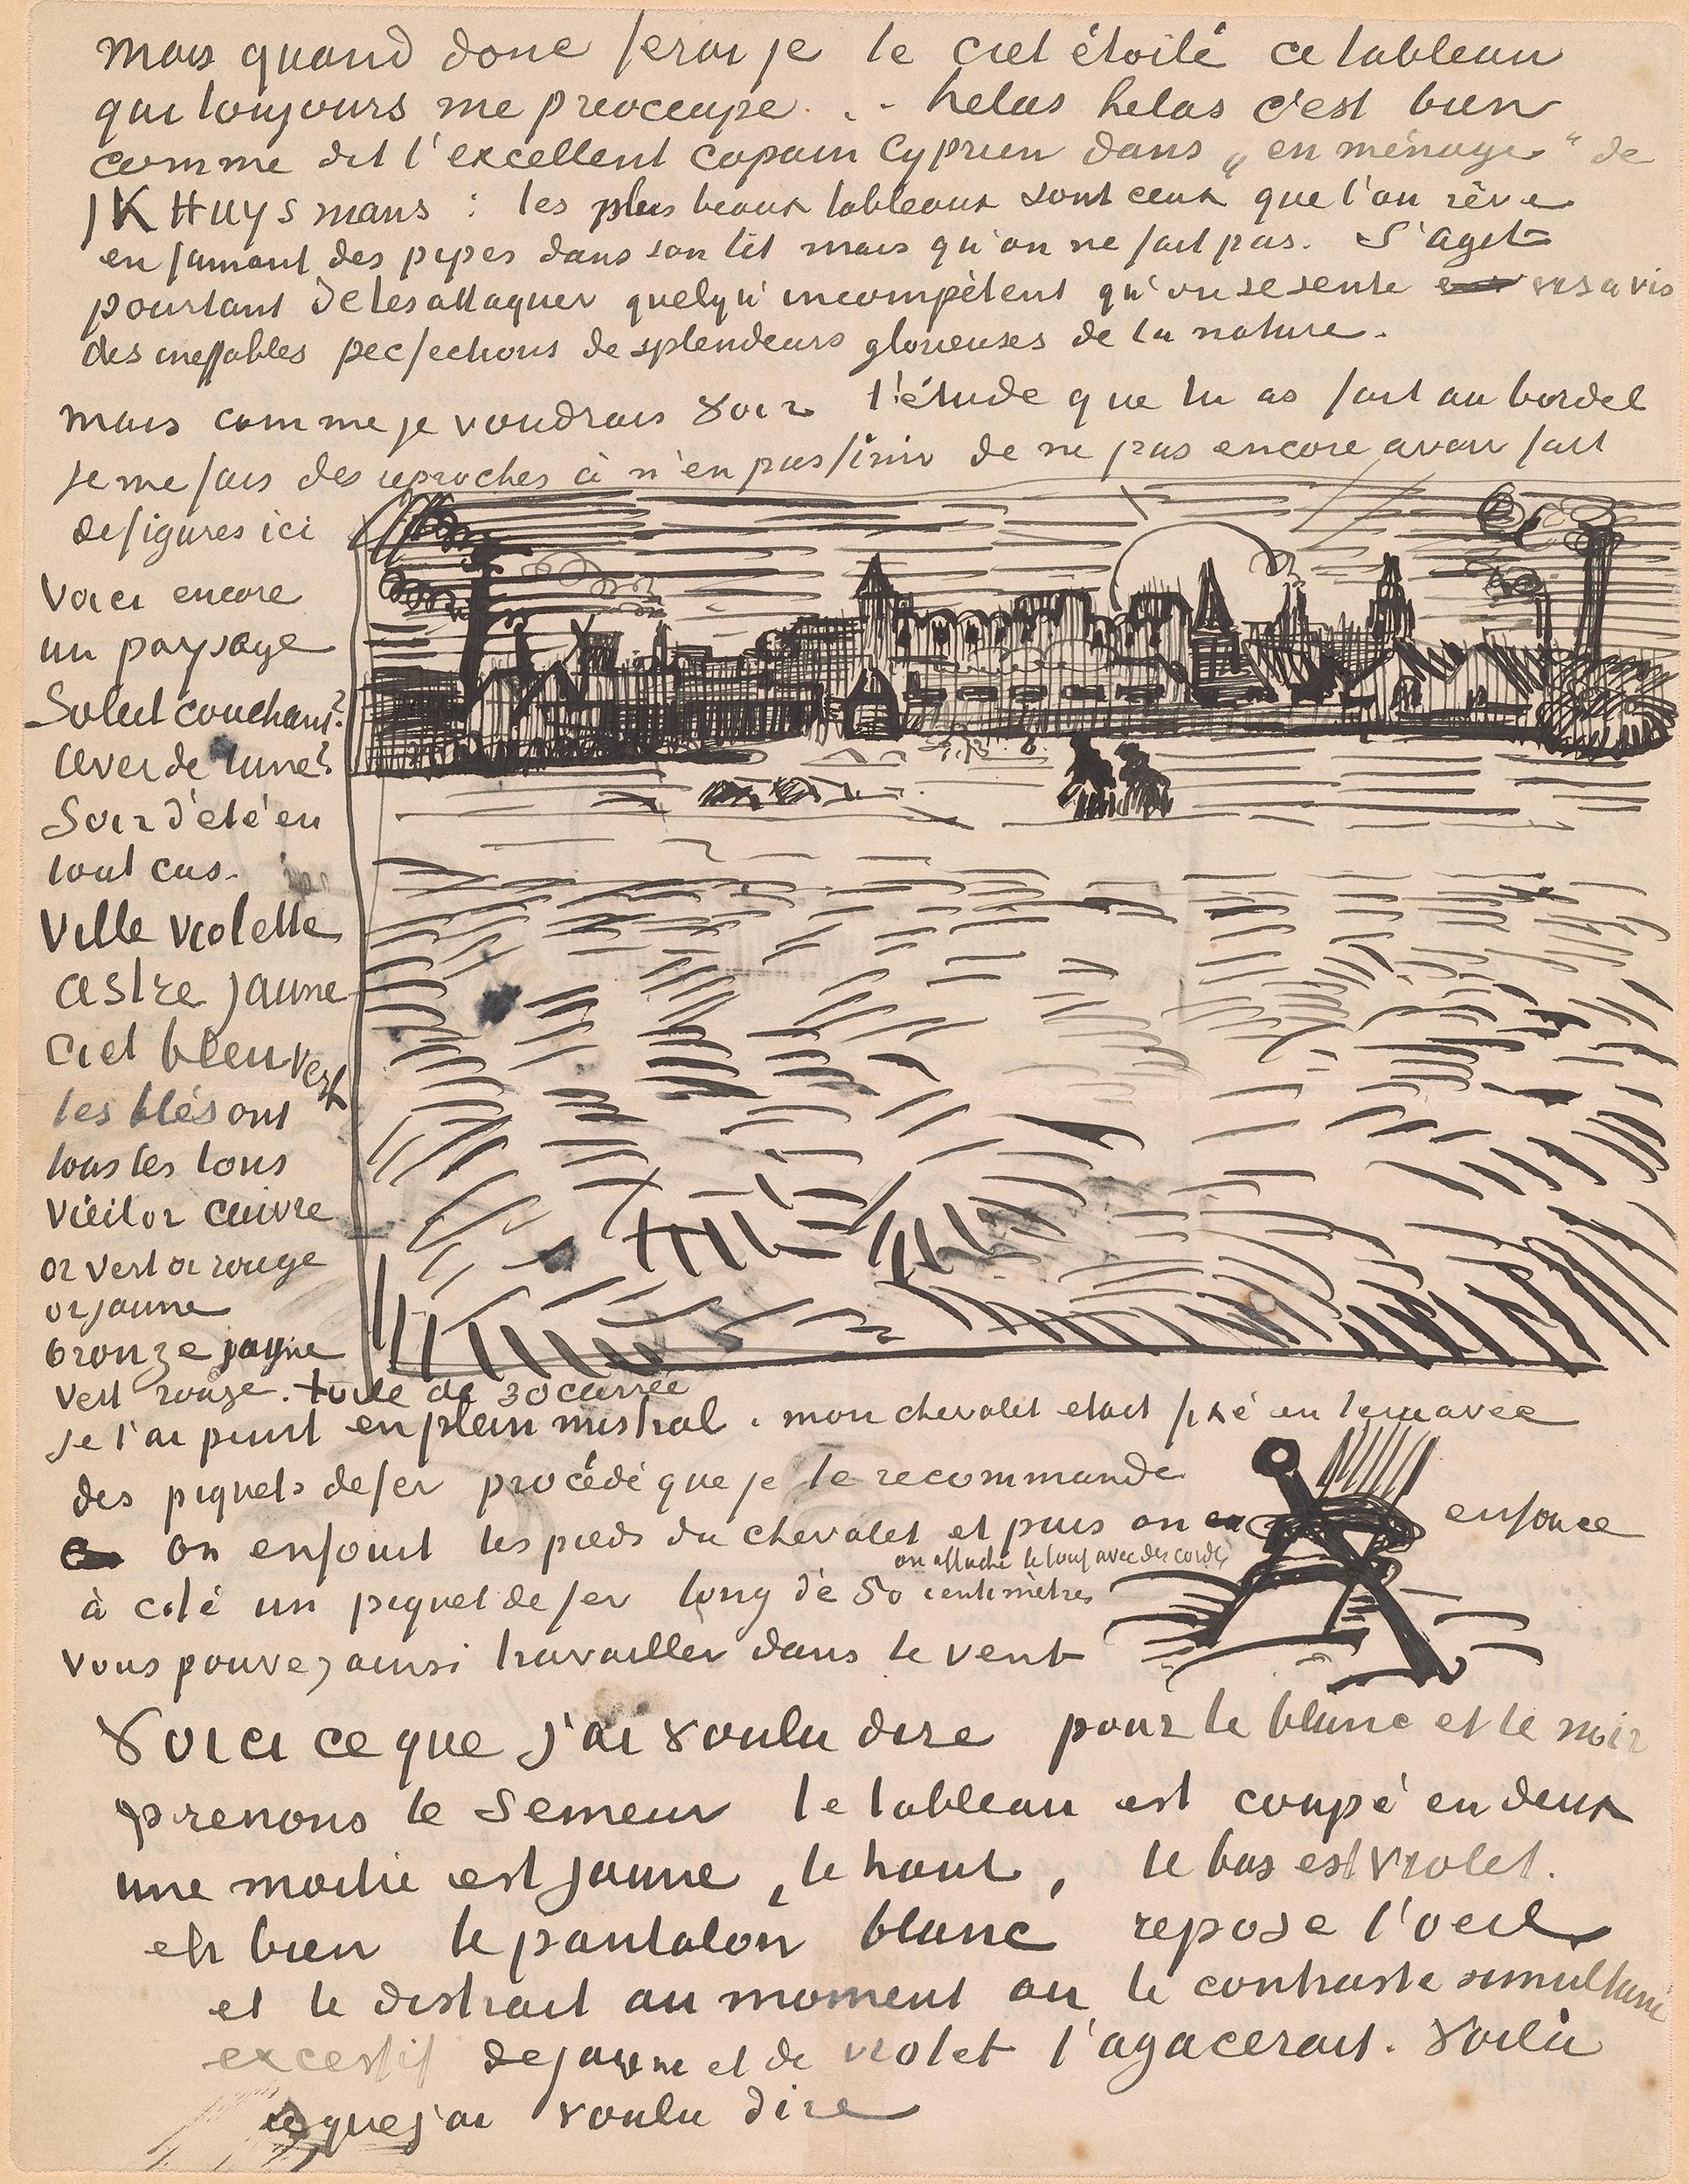 mais quand donc ferai je le ciel étoilé ce tableau
qui toujours me preoccupe . . - helas helas c'est bien
comme dit l'excellent copain Cyprien dans „en ménage" de
J K Huysmans : les plus beaux tableaux sont ceux que l'on rêve
en fumant des pipes dans son lit mais qu'on ne fait pas. S'agit
pourtant de les attaquer quelqu' incompétent qu'on se sente vis a vis
des ineffables perfections de splendeurs glorieuses de la nature.
mais comme je voudrais voir l'étude que tu as fait au bordel
Je me fais des reproches à n'en pas finir de ne pas encore avoir fait
de figures ici
Voici encore
un paysage
Soleil couchant?
lever de lune?
Soir d'été en
tout cas.
Ville violette
astre jaune
Ciel bleu vert
les blés ont
tous les tons
vieil or cuivre
or vert or rouge
or jaune
bronze jaune
vert rouge. toile de 30 carrée
je l'ai peint en plein mistral. mon chevalet etait fixé en terre avec
des piquets de fer procédé que je te recommande
on enfouit les pieds du chevalet et puis on enfonce
on attache le tout avec des cordes
à côté un piquet de fer long de 50 centimètres
vous pouvez ainsi travailler dans le vent
Voici ce que j'ai voulu dire pour le blanc et le noir
prenons le Semeur le tableau est coupé en deux
une moitie est jaune , le haut , le bas est violet.
eh bien le pantalon blanc repose l'oeil
et le distrait au moment ou le contraste simultané
excessif de jaune et de violet l'agacerait. Voilà
ce que j'ai voulu dire